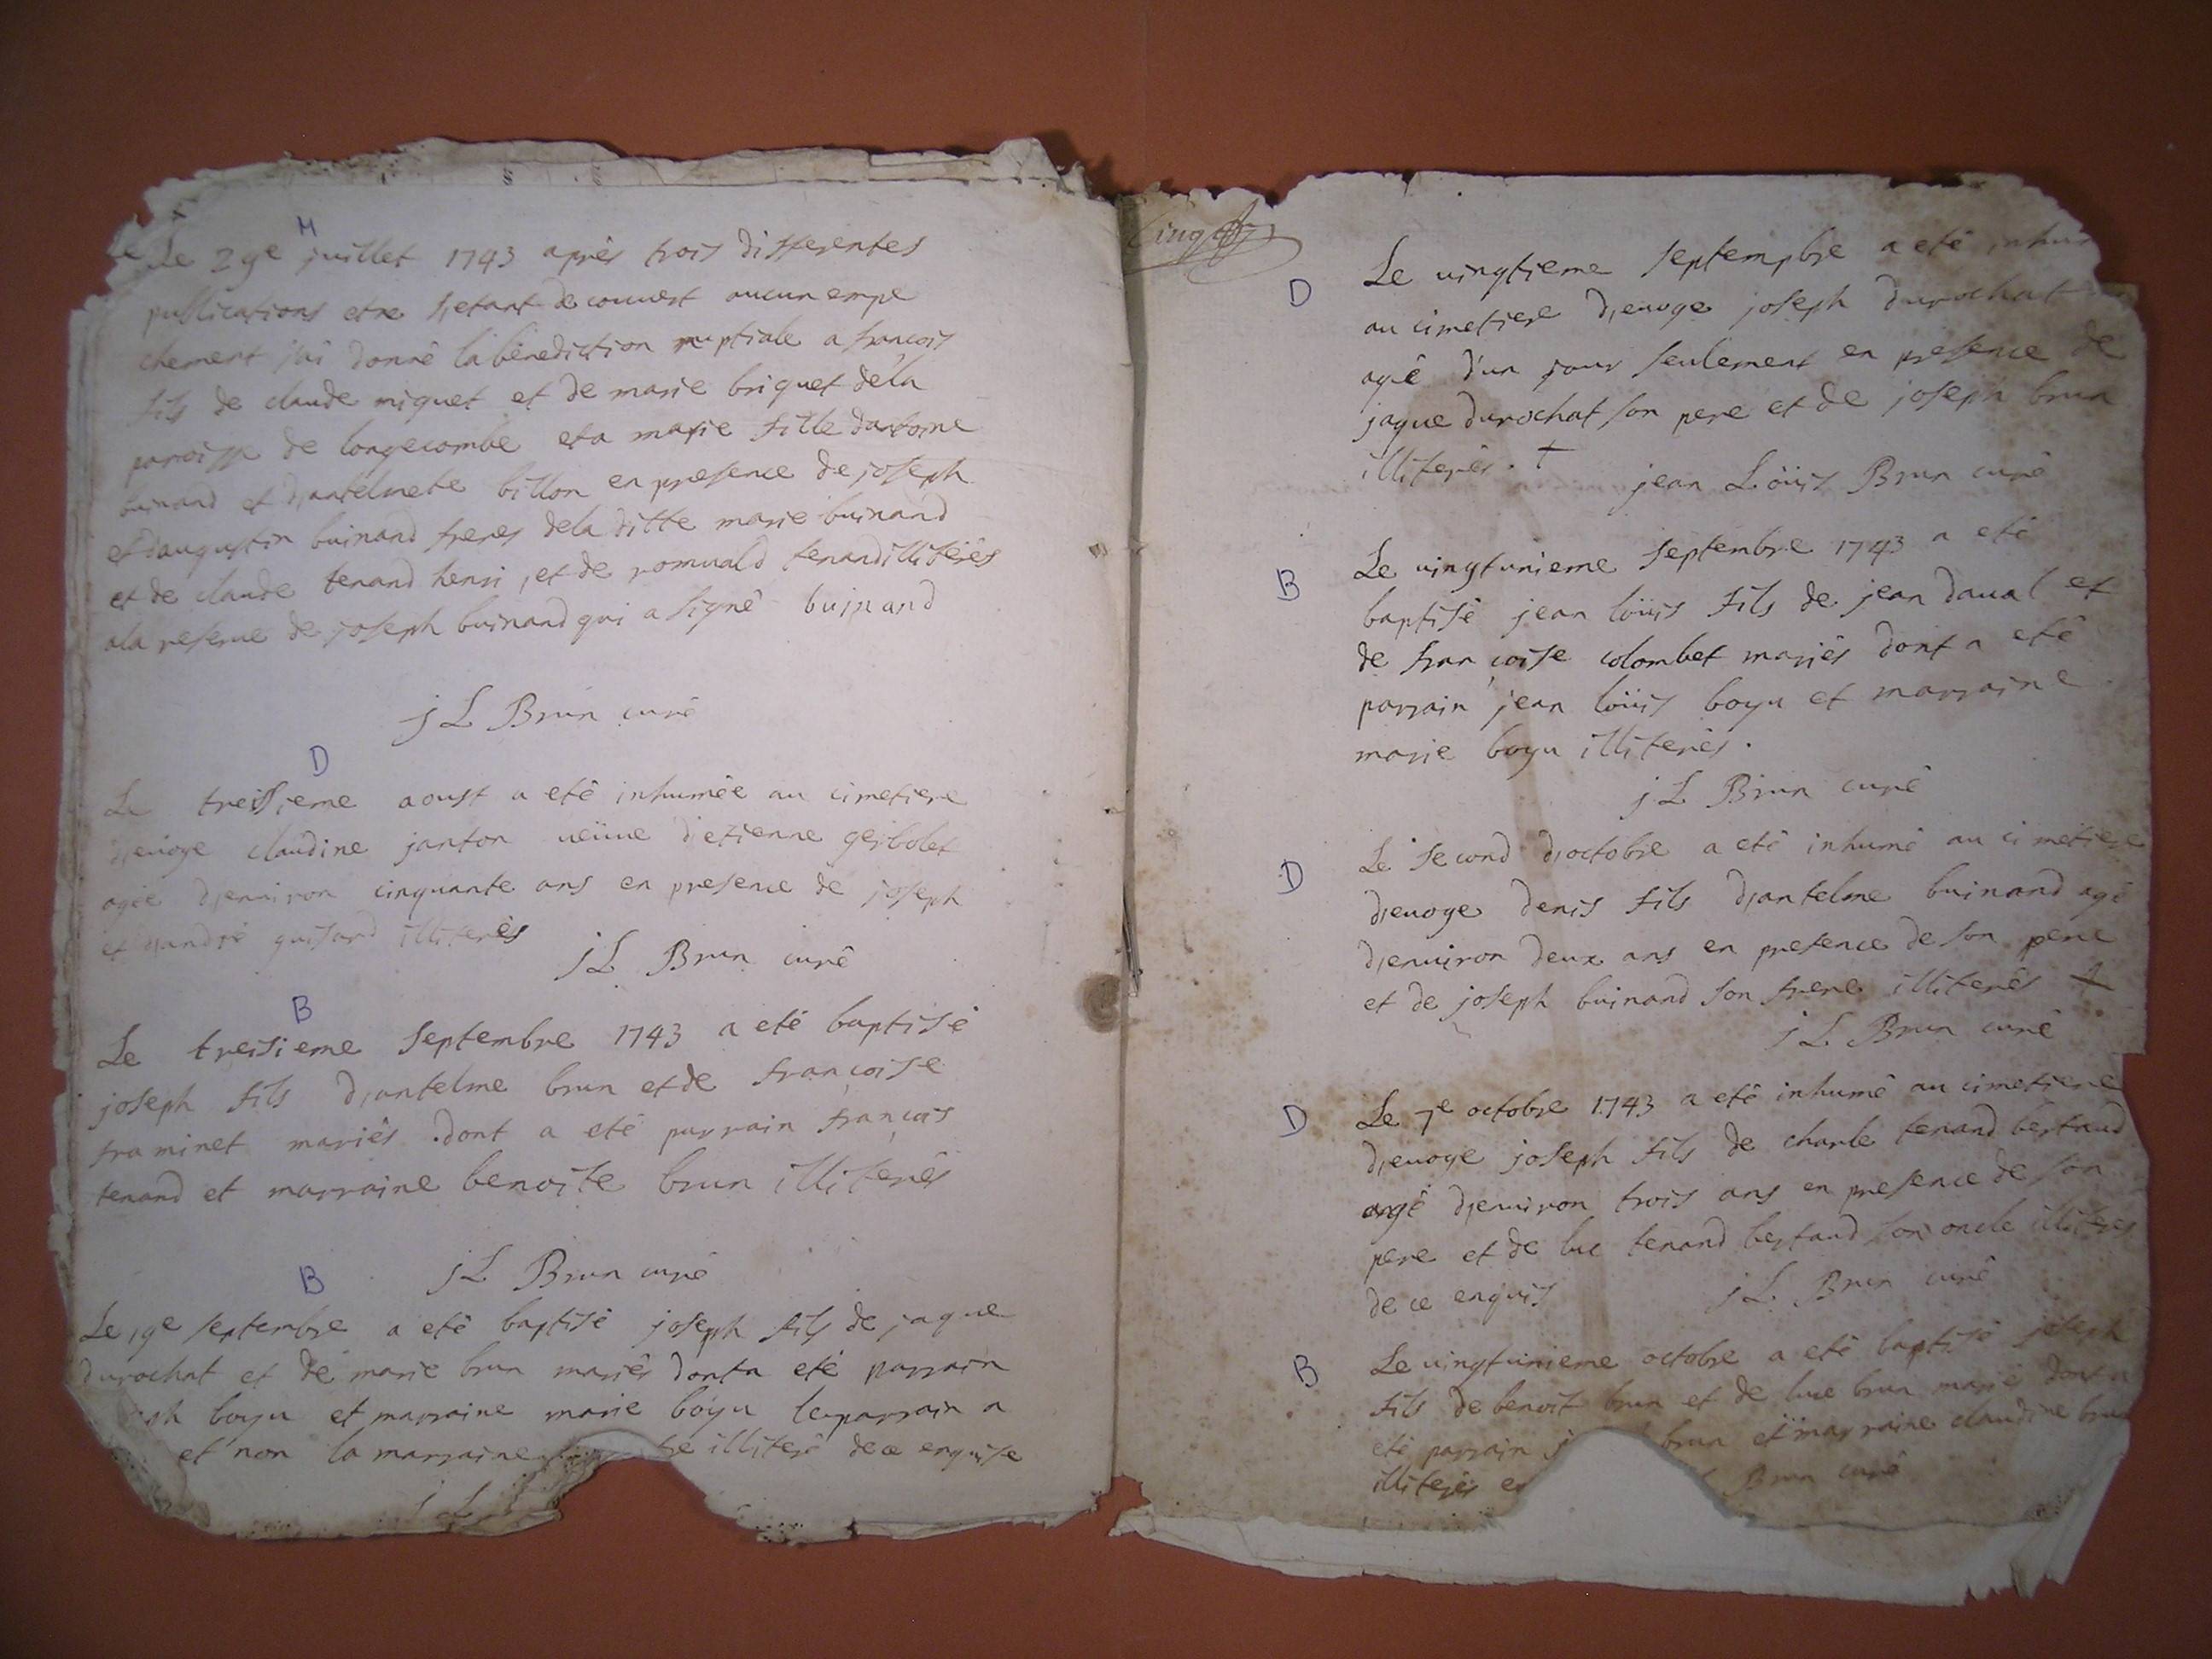 M
Le 29e juillet 1743 après trois differentes
publications et ne s,etant decouvert aucun empe
chement j'ai donné la bénédiction nuptiale a francois
fils de claude miguet et de marie briquet de la
paroisse de longecombe et a marie fille dantoine
buinand et d,antelmete billon en presence de joseph
et daugustin buinand freres dela ditte marie buinand
et de claude tenand henri, et de romuald tenand illiterés
ala reserve de joseph buinand qui a signé buinand
j L Brun curé
D
Le treisieme aoust a eté inhumée au cimetiere
d,evoge claudine janton veüve d'etienne gesbolet
agée d,environ cinquante ans en presence de joseph
et d,andré guisard illiterés
j L Brun curé
B
Le treisieme septembre 1743 a eté baptisé
joseph fils d,antelme brun et de francoise
traminet mariés dont a eté parrain francois
tenand et marraine benoite brun illiterés
j L Brun curé
B
Le 19e septembre a eté baptisé joseph fils de jaque
durochat et de marie brun mariés dont a eté parrain
boyu et marraine marie boyu le parrain a
et non la marraine illiteré de ce enquise
j L
cinq
D
Le vingtieme septempbre a eté inhu
au cimetiere d,evoge joseph durochat
agé d'un jour seulement en presence de
jaque durochat son pere et de joseph brun
illiterés. +
jean Löüis Brun curé
B
Le vingtunieme septembre 1743 a eté
baptisé jean löüis fils de jean daval et
de francoise colombet mariés dont a eté
parrain jean löüis boyu et marraine
marie boyu illiterés.
j L Brun curé
D
Le second d,octobre a eté inhumé au cimetiere
d,evoge denis fils d,antelme buinand agé
d,environ deux ans en presence de son pere
et de joseph buinand son frere illiterés +
j L Brun curé
D
Le 7e octobre 1743 a eté inhumé au cimetiere
d,evoge joseph fils de charle tenand bertaud
agé d,environ trois ans en presence de son
pere et de luc tenand bertaud son oncle illiterés
de ce enquis
j L Brun curé
B
Le vingtunieme octobre a eté baptisé joseph
fils de benoit brun et de luce brun marié dont a
eté parrain j brun et marraine claudine brun
illiterés
Brun curé